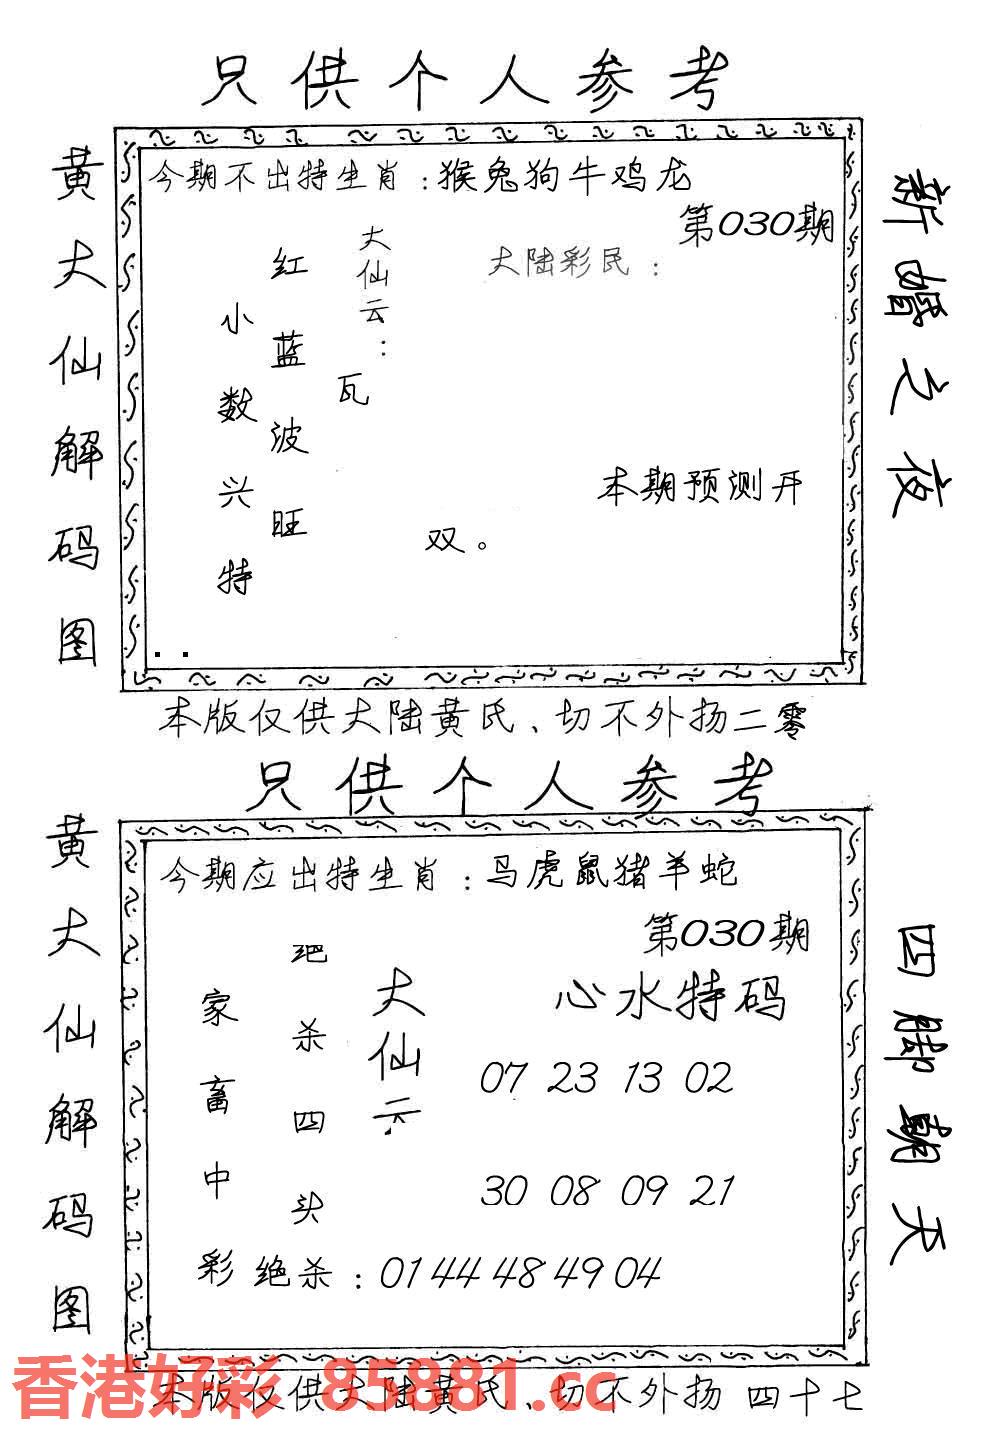 只供个人参考
黄大仙解码图
今期不出特生肖：猴兔狗牛鸡龙
第030期
大陆彩民：
大仙云：
瓦
红蓝波旺
小数兴特
本期预测开
双。
新婚之夜
本版仅供大陆黄氏、切不外扬二零
只供个人参考
黄大仙解码图
今期应出特生肖：马虎鼠猪羊蛇
第030期
心水特码
大仙云：
杀四头
家畜中彩
07 23 13 02
30 08 09 21
绝杀：01 44 48 49 04
四脚朝天
香港好彩 85881.cc
本版仅供大陆黄氏、切不外扬 四十七